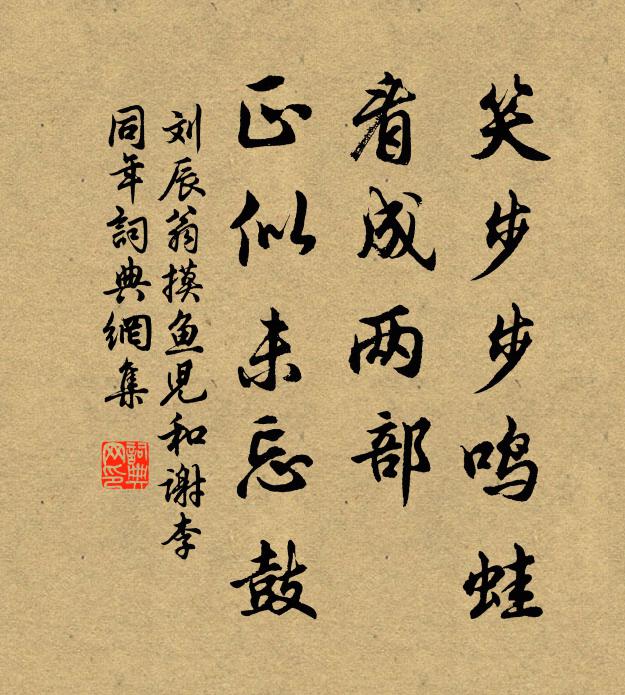 笑步步鸣蛙
看成两部
正似未忘鼓
刘辰翁摸鱼児和谢李
同年詞典網集
詞典
网印